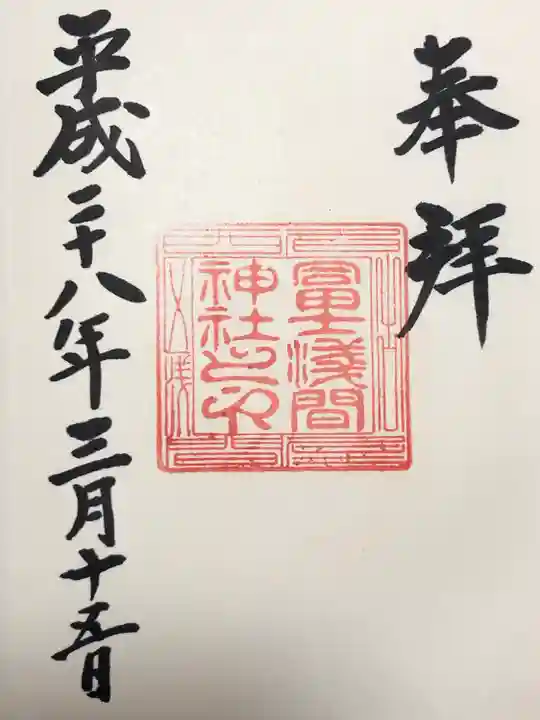 奉拝
冨士浅間
神社之印
平成二十八年三月十五日